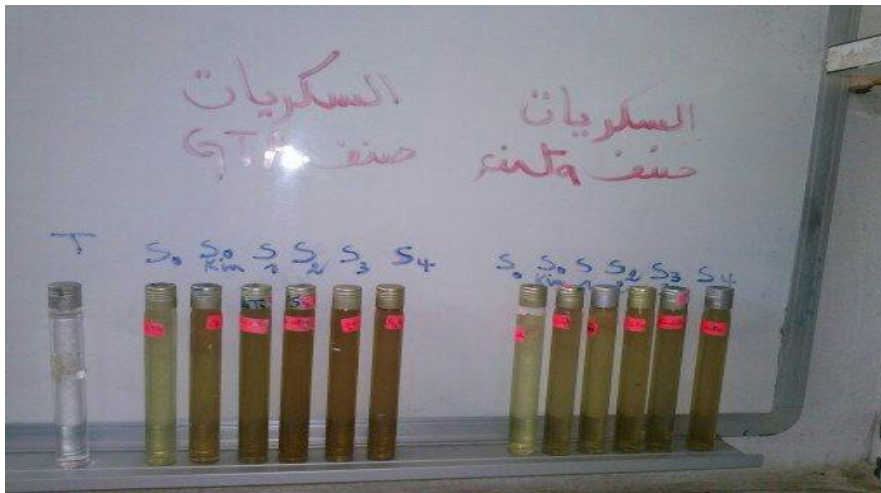 السكريات
صنف GTA
السكريات
صنف cinta
T
S0 S0 Kin S1 S2 S3 S4
S0 S0 Kin S1 S2 S3 S4